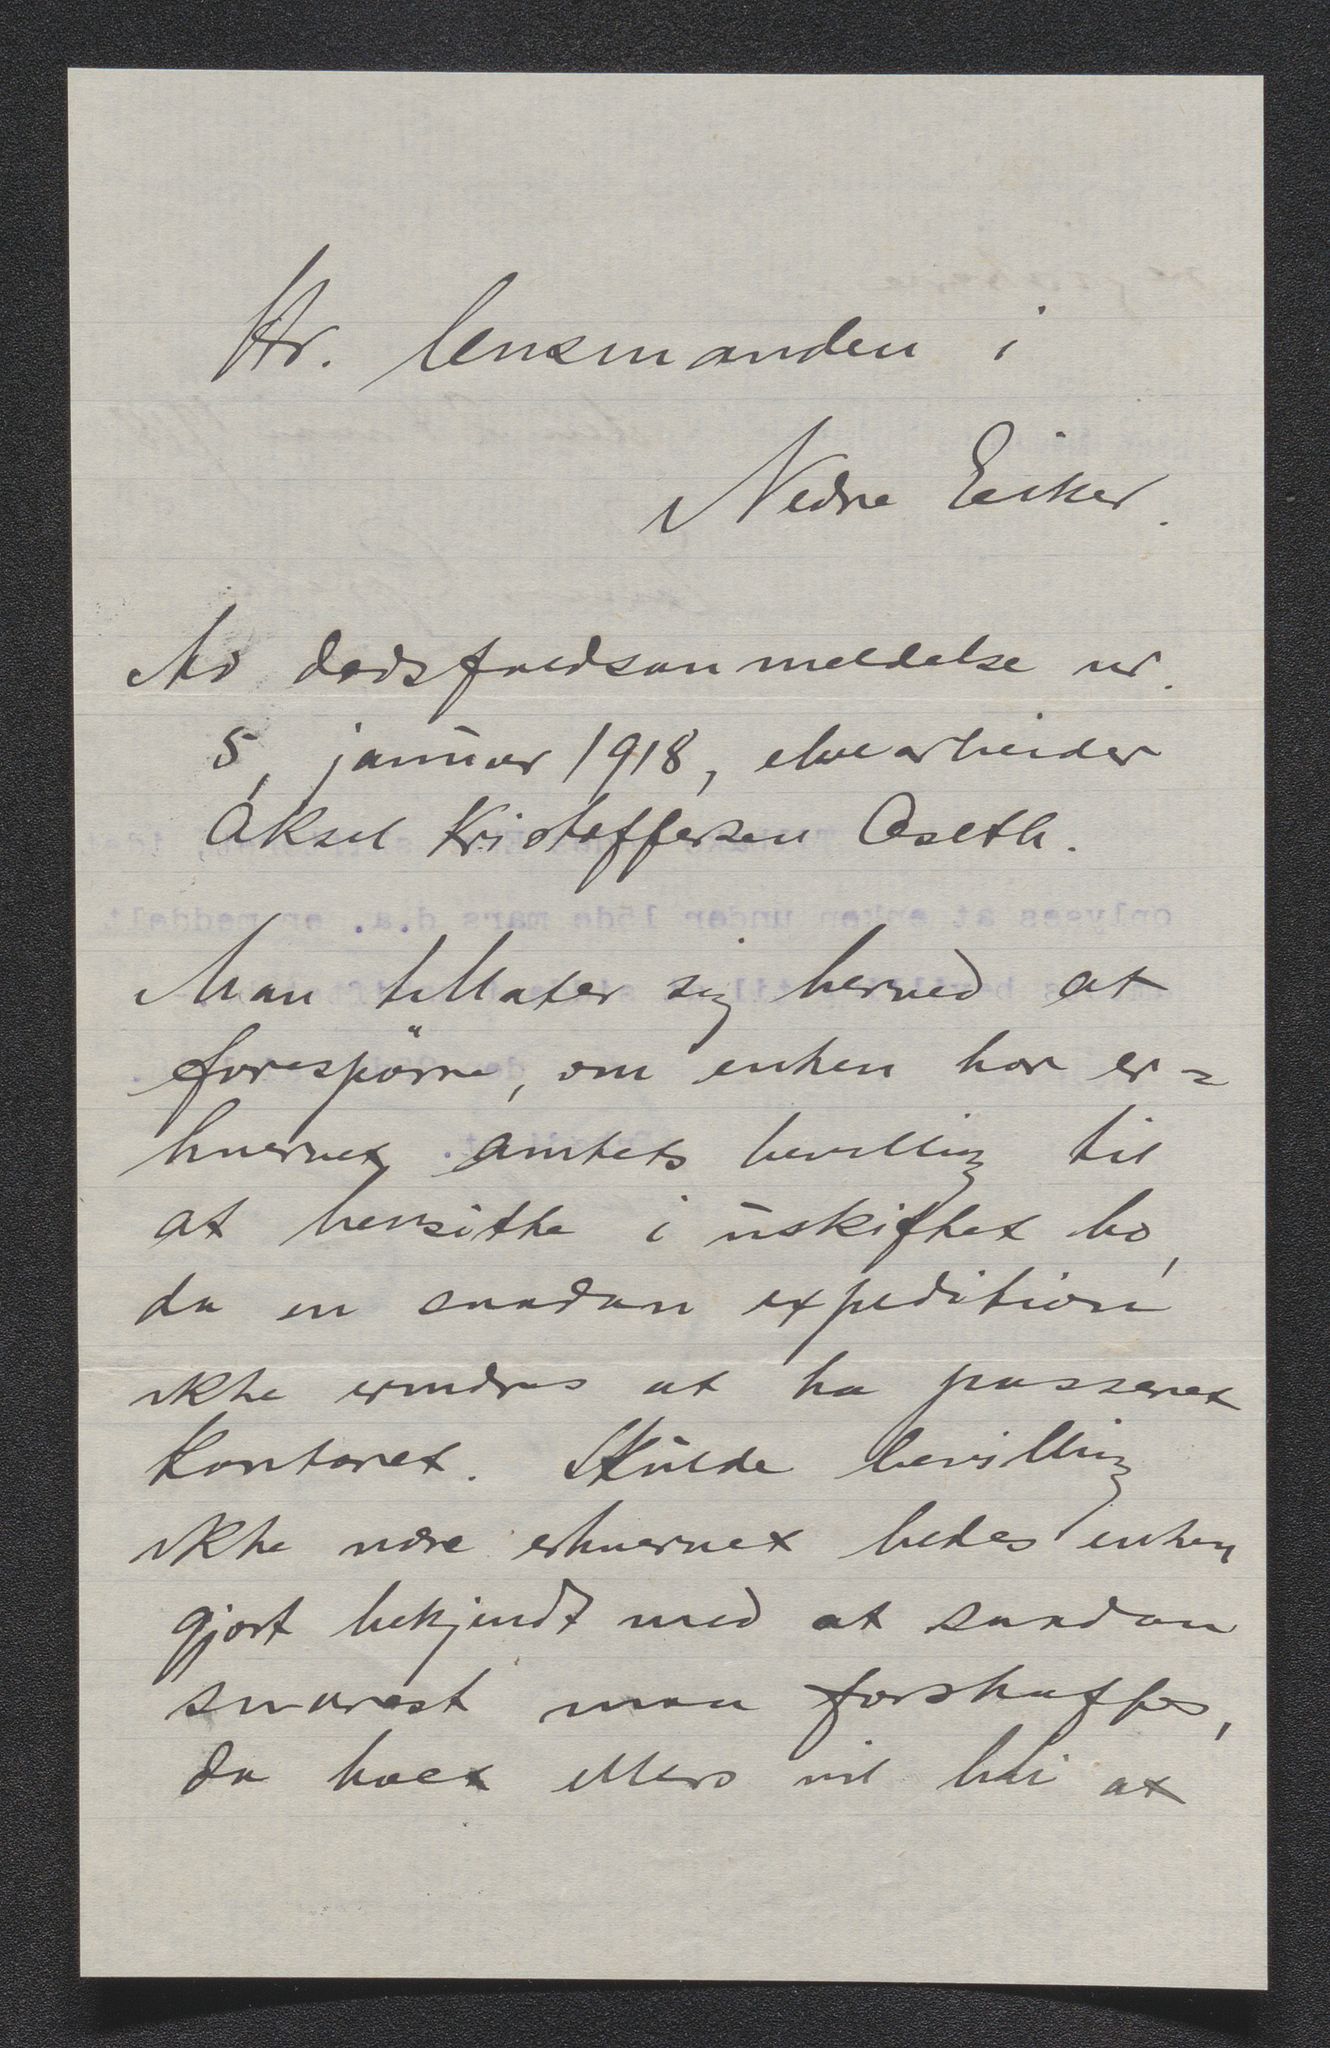 Hr. lensmanden i
Nedre Eiker.
Ad dødsfaldsanmeldelse nr.
5, januar 1918, elvearbeider
Aksel Kristoffersen Aseth.
Man tillater sig herved at
forespörre, om enken har er=
hvervet amtets bevilling til
at hensitte i uskiftet bo,
da en saadan expedition
ikke erindres at ha passeret
kontoret. Skulde bevilling
ikke være erhvervet bedes enken
gjort bekjendt med at saadan
snarest maa forskaffes,
da boet ellers vil bli at
oplyses at enken under 15de mars d.a. er meddelt